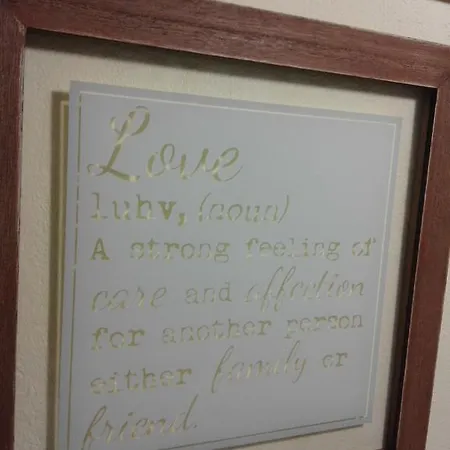 Love
luhv, (noun)
A strong feeling of
care and affection
for another person
either family or
friend.